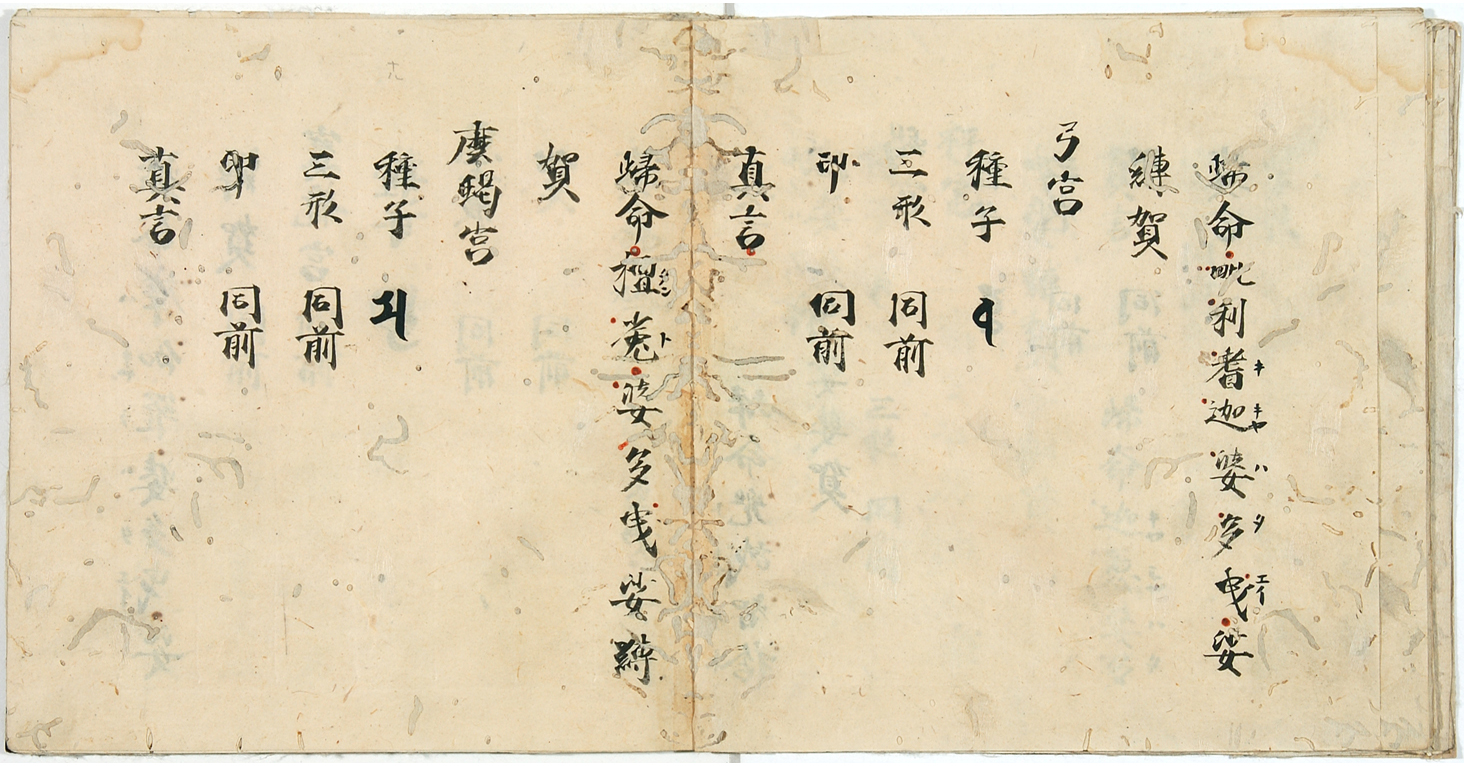 歸命毗利耆迦婆多曳娑
縛賀
弓宮
種子 
三形 同前
印 同前
真言
歸命檀菟婆多曳娑縛
賀
磨蝎宮
種子 
三形 同前
印 同前
真言